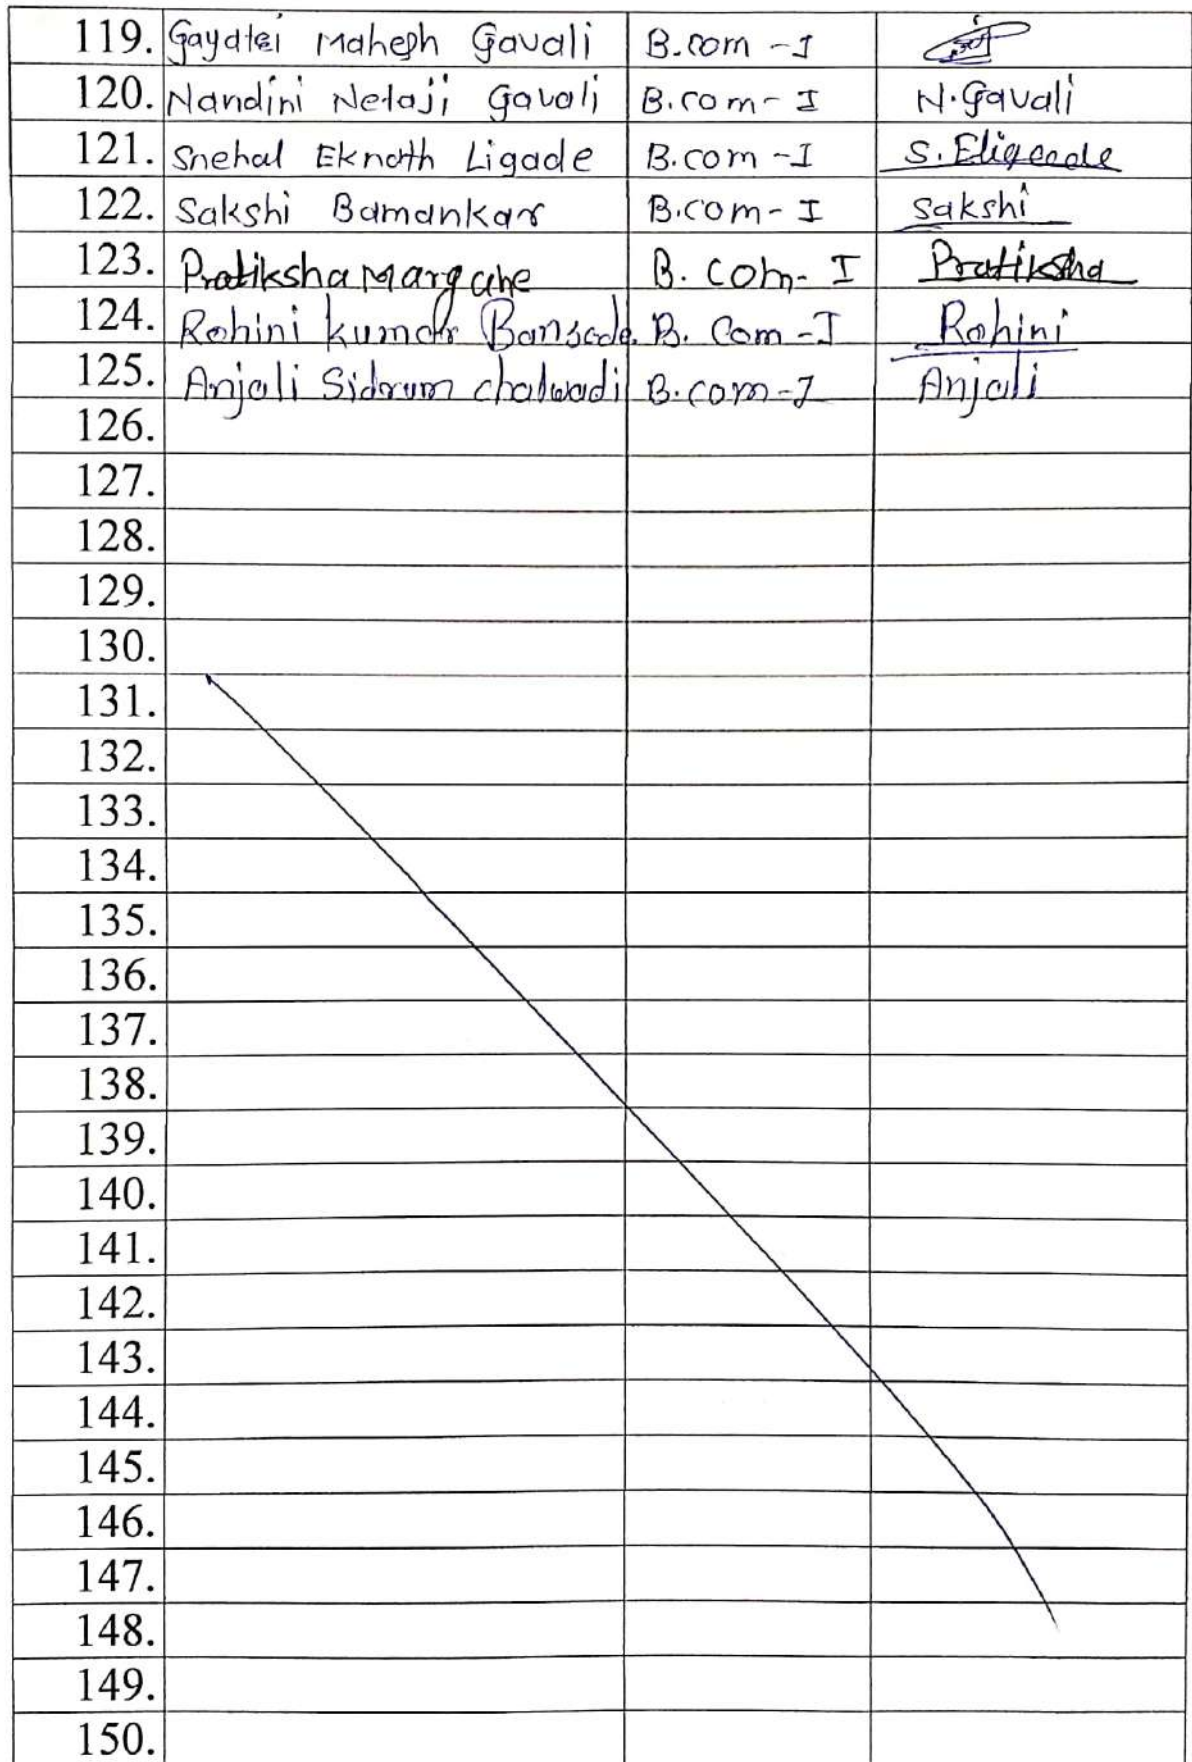 119. Gayatri Mahesh Gavali B.com - I
120. Nandini Netaji Gavali B.com - I N.Gavali
121. Snehal Eknath Ligade B.com - I
122. Sakshi Bamankar B.com - I Sakshi
123. Pratiksha Margane B. com - I Pratiksha
124. Rohini kumar Bansode. B. Com - I Rohini
125. Anjali Sidram chalwadi B.com - I Anjali
126.
127.
128.
129.
130.
131.
132.
133.
134.
135.
136.
137.
138.
139.
140.
141.
142.
143.
144.
145.
146.
147.
148.
149.
150.